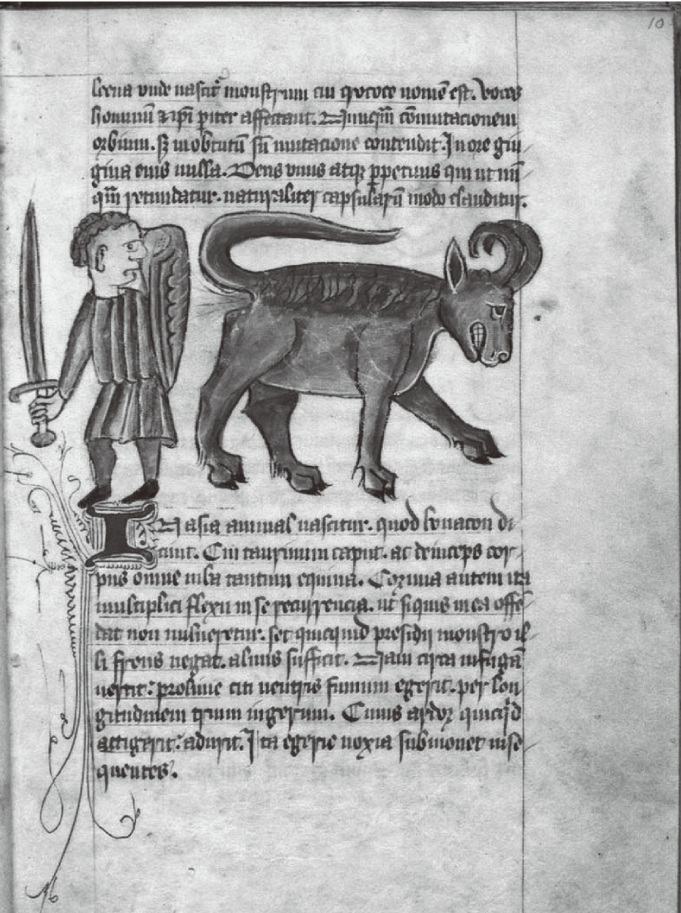 10
leena unde nascit᷑ monstrum cui crocote nomē est. voces
hominū ⁊ ip̄i pit᷑ affectant. Nunq̄m cōmutacionem
orbium. S; in obtutū sn̄ mutacione contendit. In ore gin
giua eius nulla. Dens vnus atq; ꝑpetuus qui ut nū
q̄m retundatur. naturaliter capsularū modo clauditur.
In asia animal nascitur. quod bonacon di
cunt. Cui taurinum caput. ac deinceps cor
pus omne iuba tantum equina. Cornua autem ita
multiplici flexu in se recurrencia. ut siquis in ea offē
dat non uulneretur. set quicquid presidii monstro il
li frons negat. aluus sufficit. Nam cum in fugā
uertit: proluuie citi uentris fumum egerit. per lon
gitudinem trium iugerum. Cuius ardor quicq̄d
attigerit: adurit. Ita egerie noxia submouet inse
quentes.